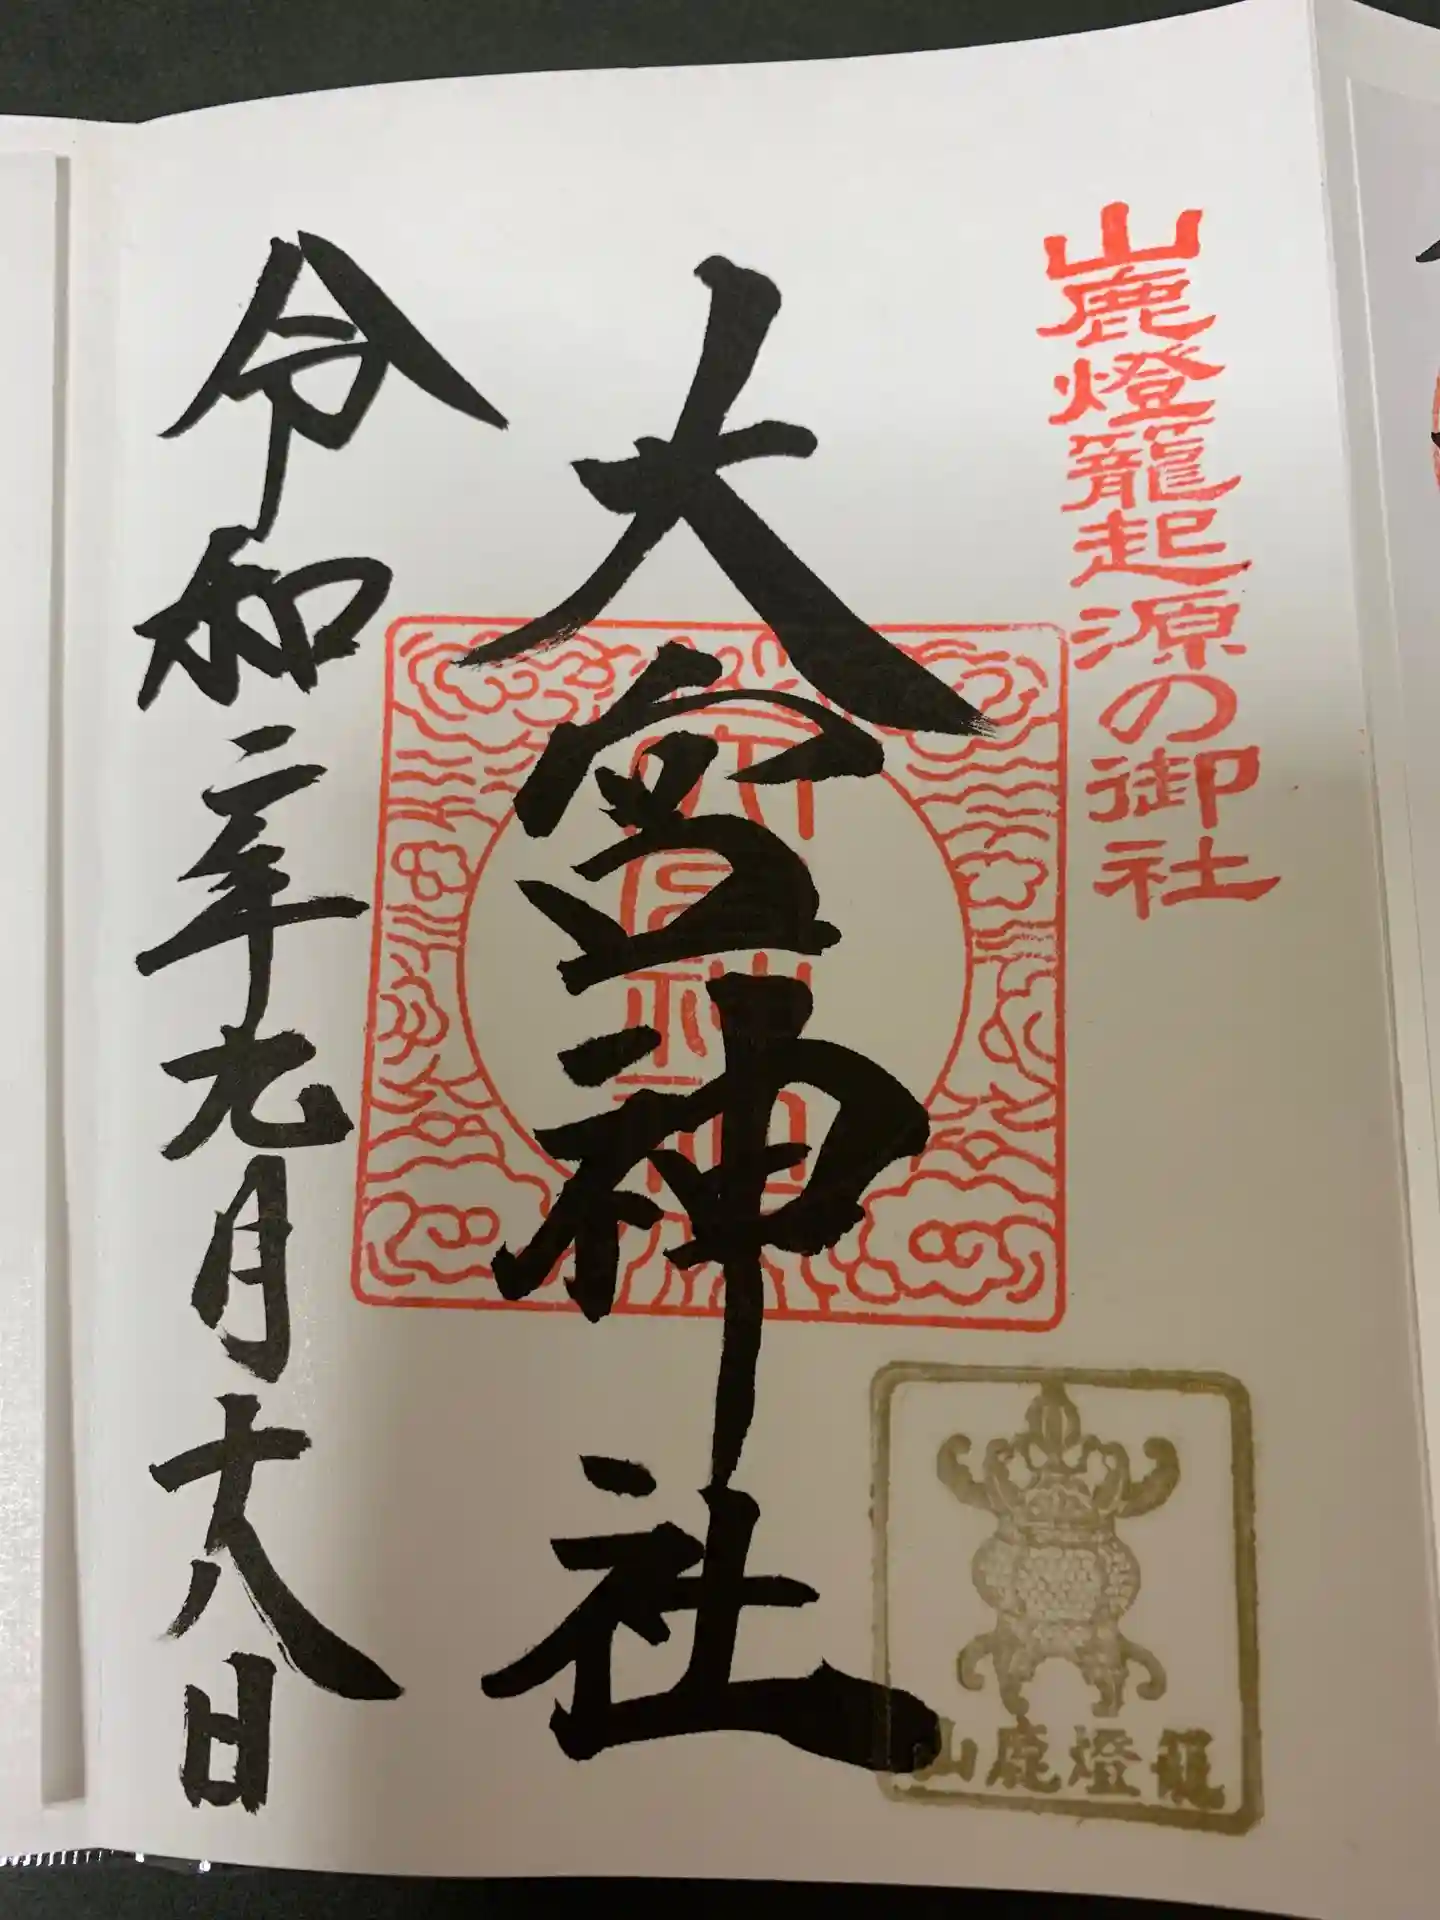 山鹿燈籠起源の御社
大宮神社
令和二年九月十八日
山鹿燈籠